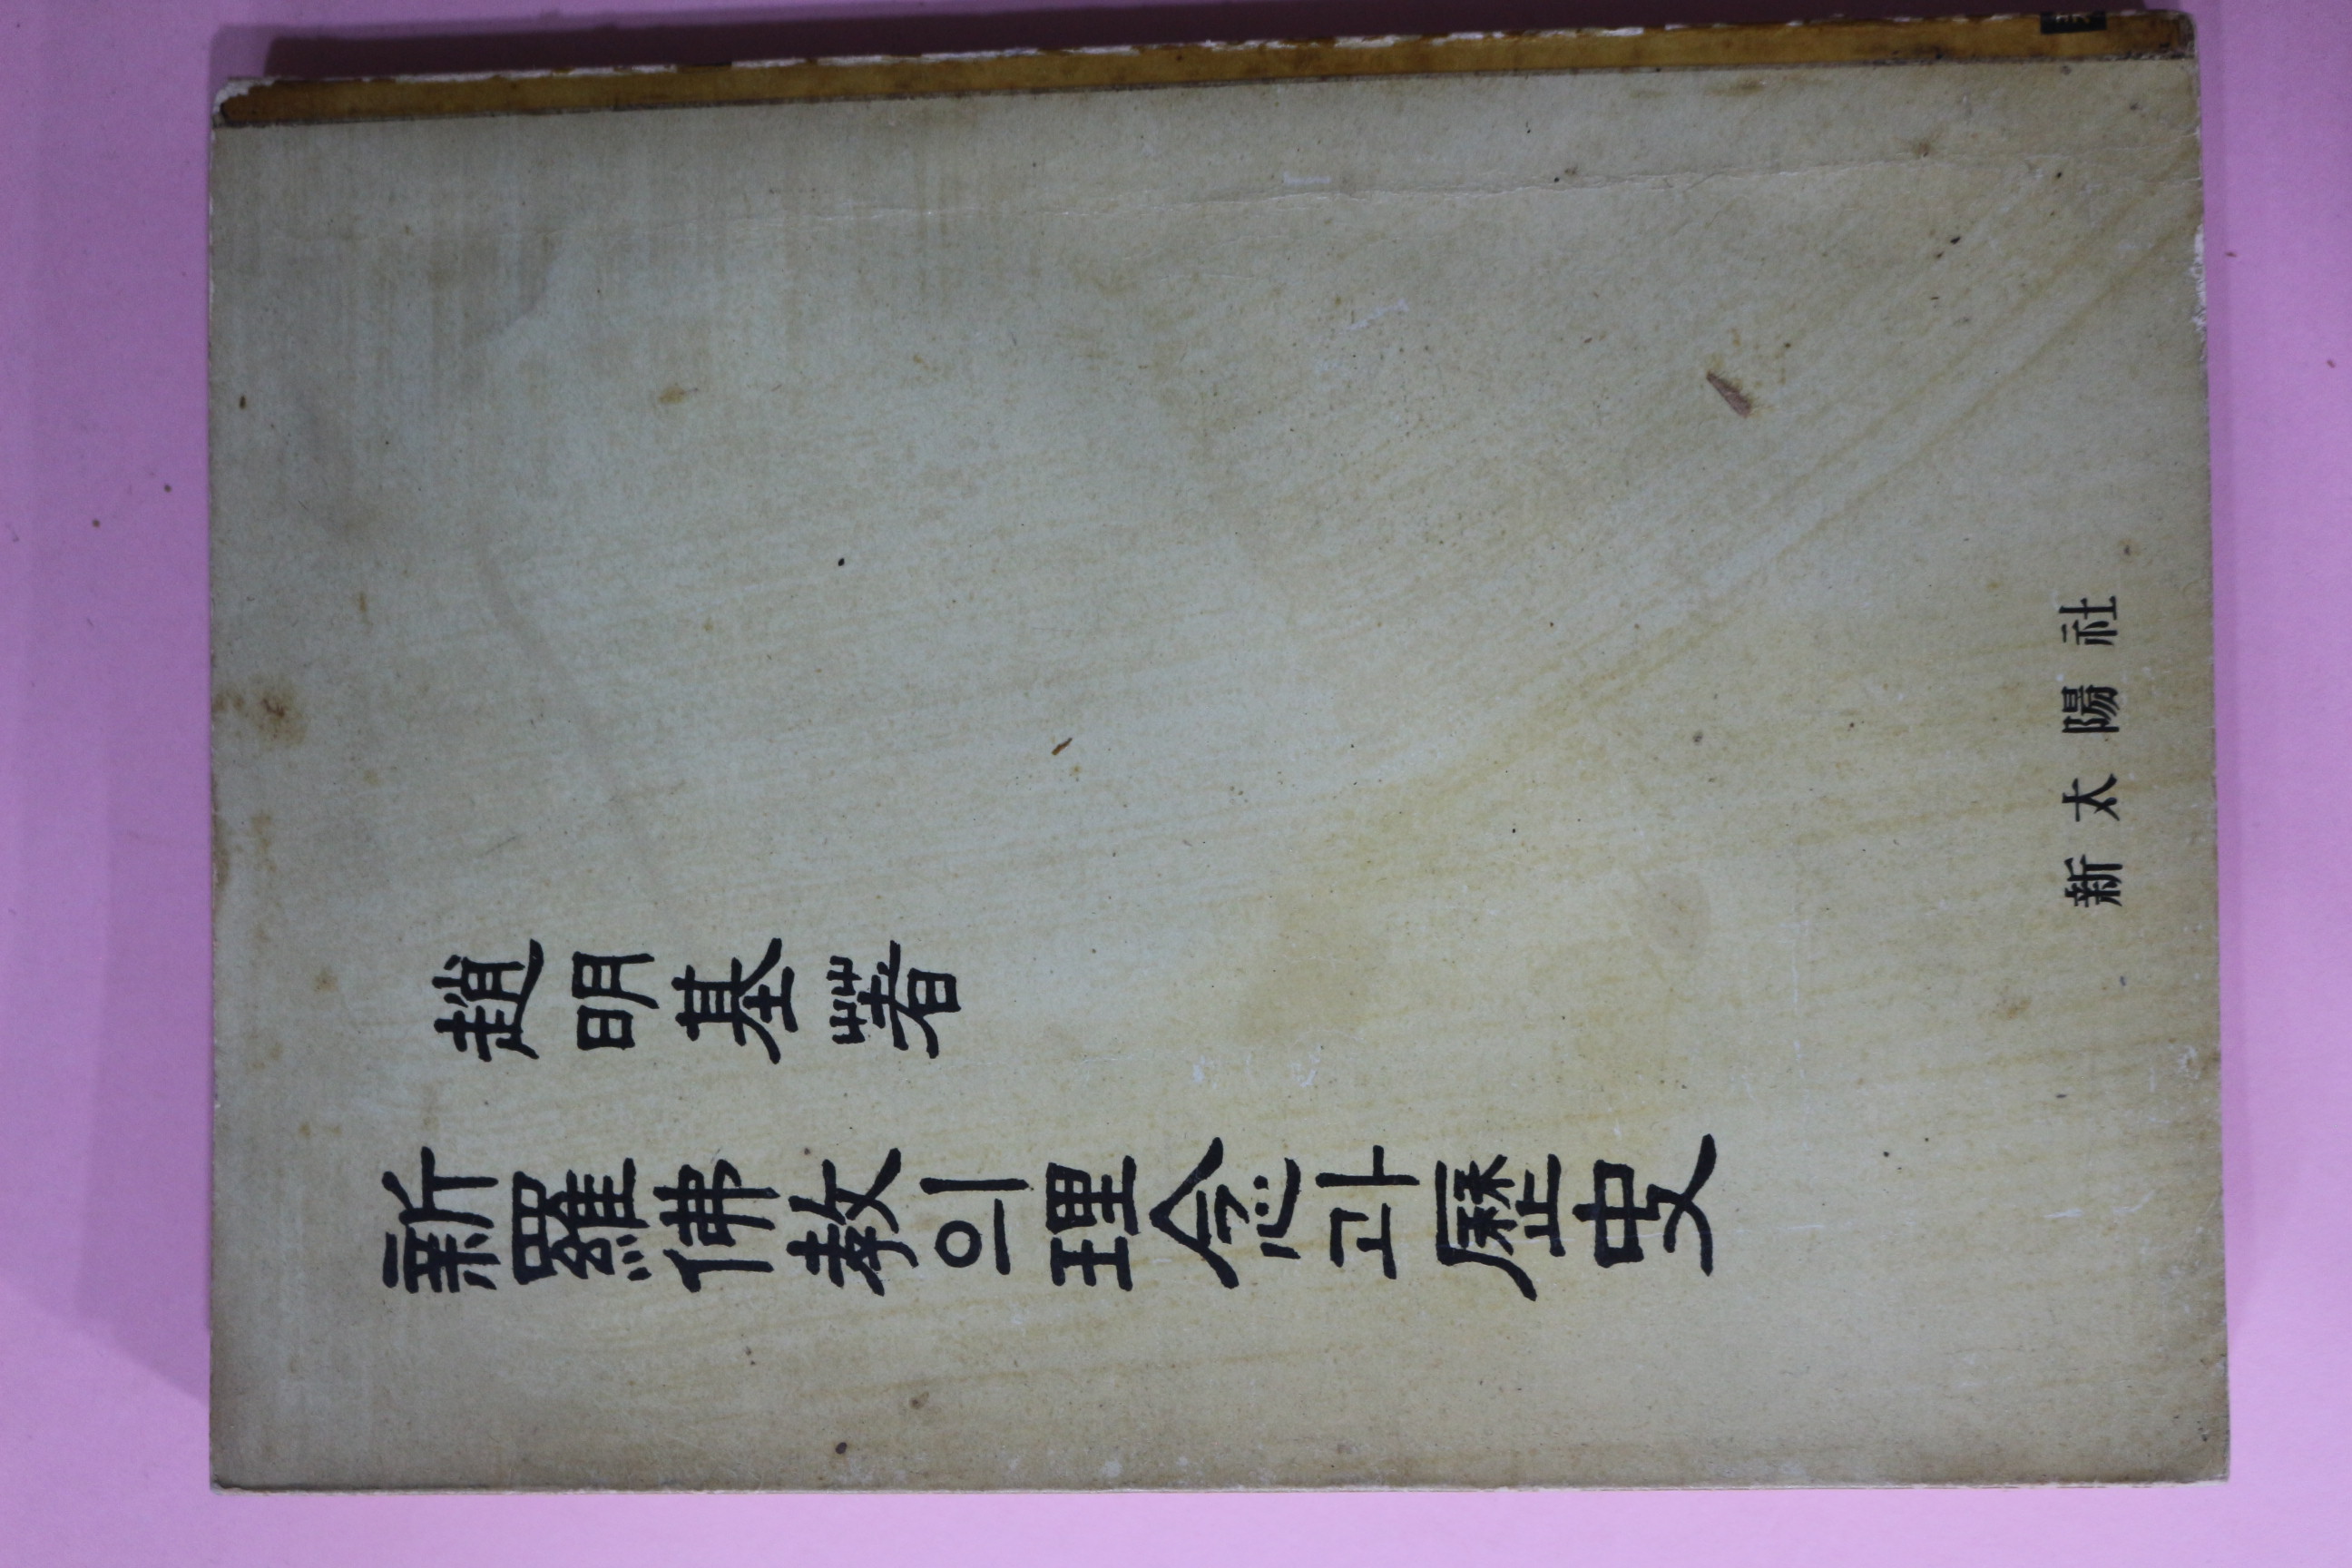 新羅佛敎의理念과歷史
趙明基著
新太陽社